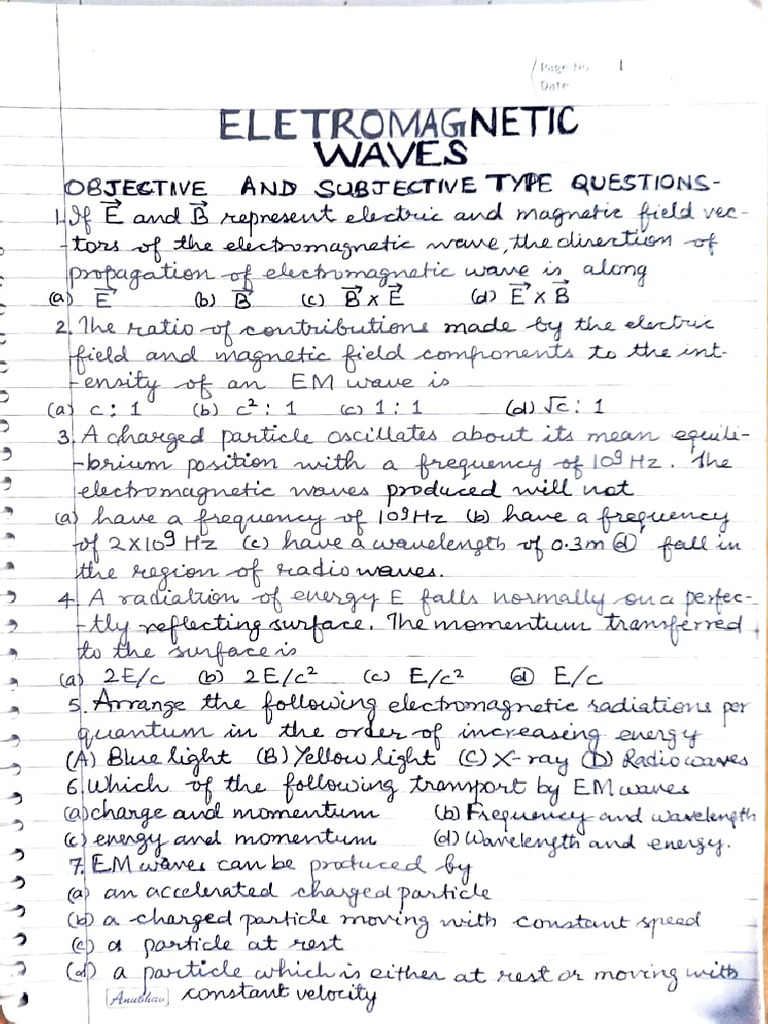 Page No. 1
Date
ELETROMAGNETIC
WAVES
OBJECTIVE AND SUBJECTIVE TYPE QUESTIONS-
1. If E⃗ and B⃗ represent electric and magnetic field vec-
-tors of the electromagnetic wave, the direction of
propagation of electromagnetic wave is along
(a) E⃗ (b) B⃗ (c) B⃗ x E⃗ (d) E⃗ x B⃗
2. The ratio of contributions made by the electric
field and magnetic field components to the int-
-ensity of an EM wave is
(a) c : 1 (b) c² : 1 (c) 1 : 1 (d) √c : 1
3. A charged particle oscillates about its mean equili-
-brium position with a frequency of 10⁹ Hz. The
electromagnetic waves produced will not
(a) have a frequency of 10⁹ Hz (b) have a frequency
of 2 x 10⁹ Hz (c) have a wavelength of 0.3m (d) fall in
the region of radio waves.
4. A radiation of energy E falls normally on a perfec-
-tly reflecting surface. The momentum transferred
to the surface is
(a) 2E/c (b) 2E/c² (c) E/c² (d) E/c
5. Arrange the following electromagnetic radiations per
quantum in the order of increasing energy
(A) Blue light (B) Yellow light (C) X-ray (D) Radio waves
6. Which of the following transport by EM waves
(a) charge and momentum (b) Frequency and wavelength
(c) energy and momentum (d) Wavelength and energy.
7. EM waves can be produced by
(a) an accelerated charged particle
(b) a charged particle moving with constant speed
(c) a particle at rest
(d) a particle which is either at rest or moving with
Anubhav constant velocity